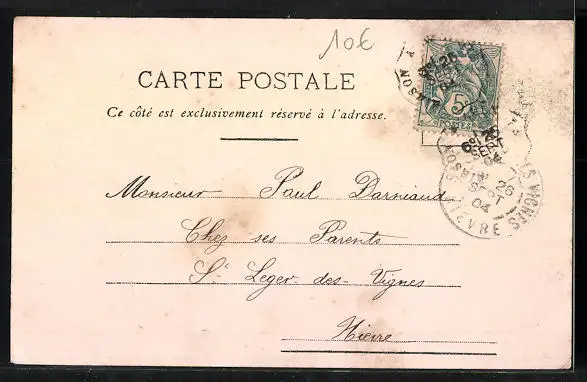 10€
CARTE POSTALE
Ce côté est exclusivement réservé à l'adresse.
5
POSTES
26
SEPT
04
NIÈVRE
Monsieur Paul Darniaud
Chez ses Parents
St Leger-des-Vignes
Nièvre